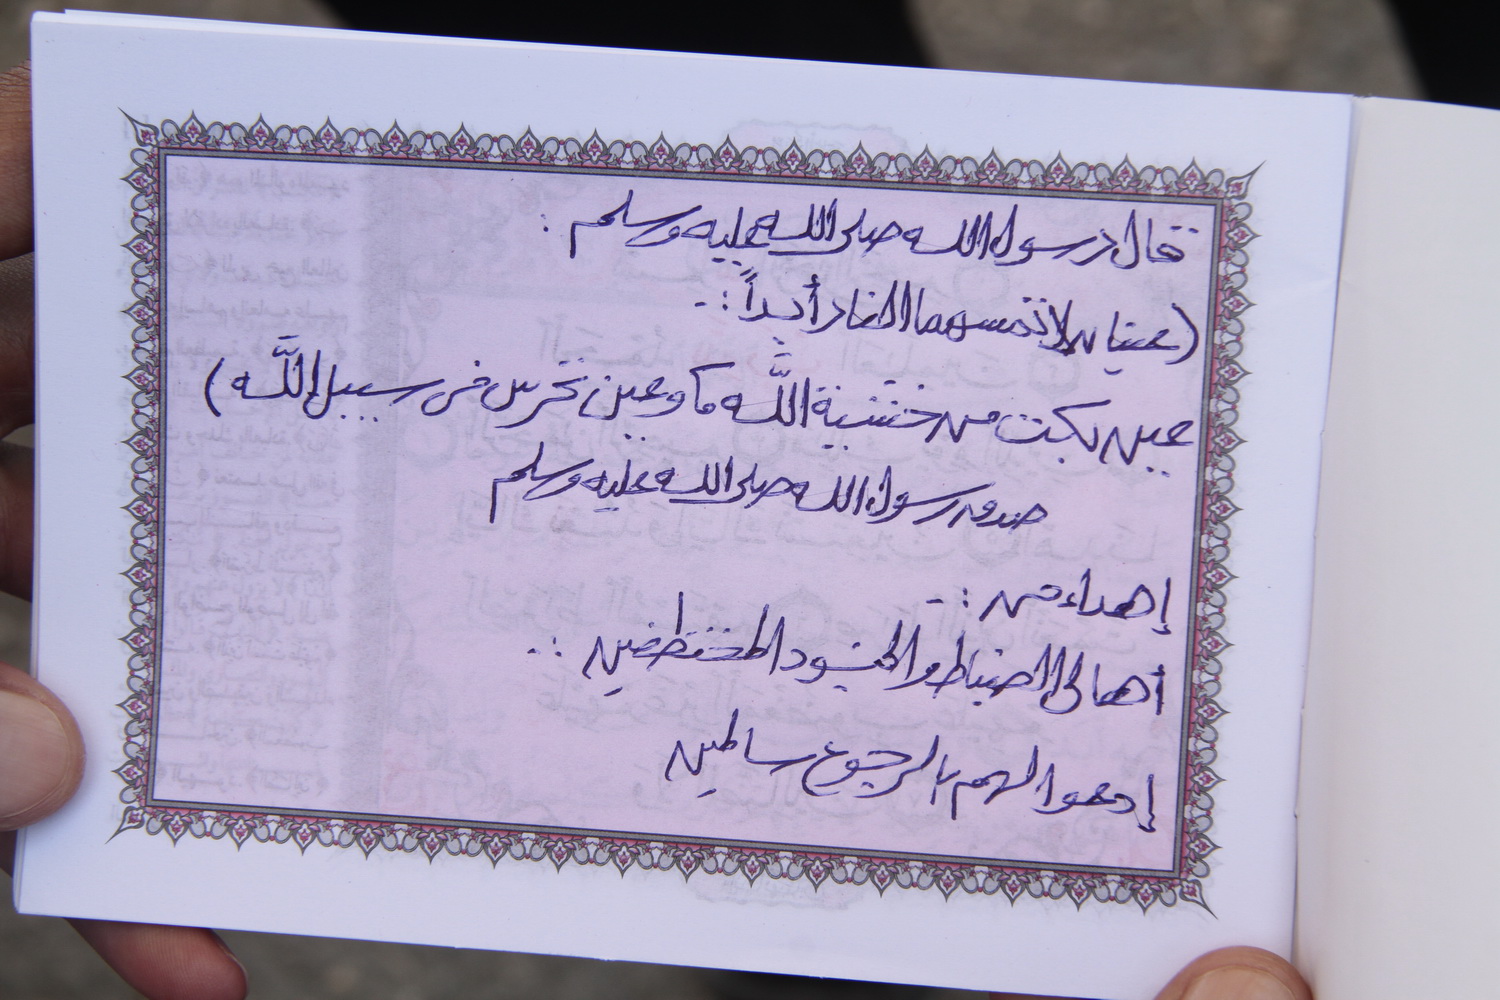 قال رسول الله صلى الله عليه وسلم :
(عينان لا تمسهما النار أبداً :-
عين بكت من خشية اللَّه وعين تحرس في سبيل اللَّه)
صدق رسول الله صلى الله عليه وسلم
إهداء من :-
أهالي الضباط والجنود المختطفين :-
إدعوا لهم بالرجوع سالمين